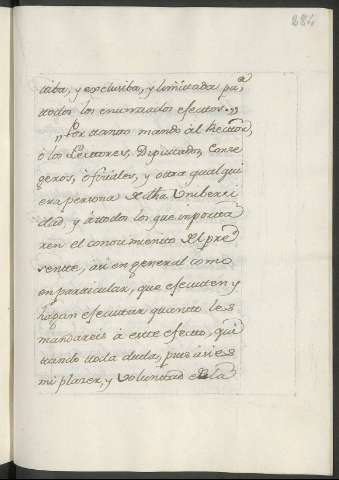 284
ctiba, y exclusiba, y limitada pa
ttodos los enunciados efectos.,,
,,Por ttanto mando ál Rector,
ò los Lectores, Diputtados, Conse
geros, ò ficiales, y ottra qualqui
era persona de dha Vnibersi
dad, y áttodos los que inportta
ren el conocimiento del pre
sentte, ási en general como
en partticular, que efecuten y
hagan efecuttar quantto les
mandareis à este efecto, qui
ttando ttoda duda, pues ási es
mi placer, y Voluntad de la